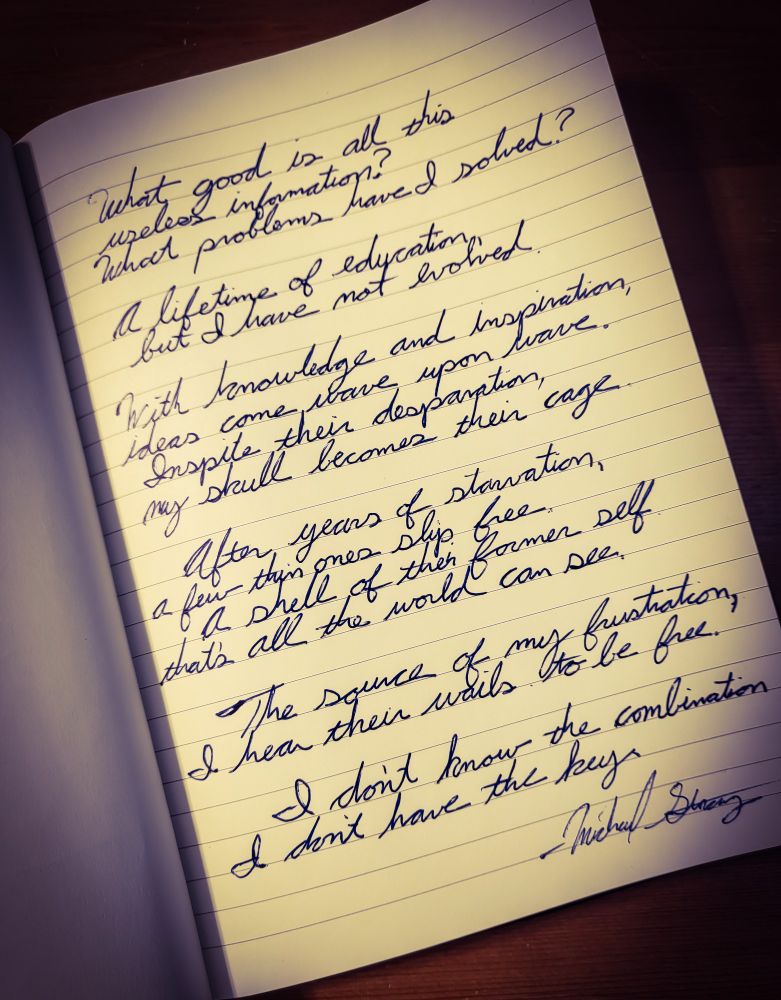 What good is all this
useless information?
What problems have I solved?
A lifetime of education,
but I have not evolved.
With knowledge and inspiration,
ideas come wave upon wave.
Inspite their desparation,
my skull becomes their cage.
After years of starvation,
a few thin ones slip free.
A shell of their former self
that's all the world can see.
The source of my frustration,
I hear their wails to be free.
I don't know the combination
I don't have the key.
-Michael